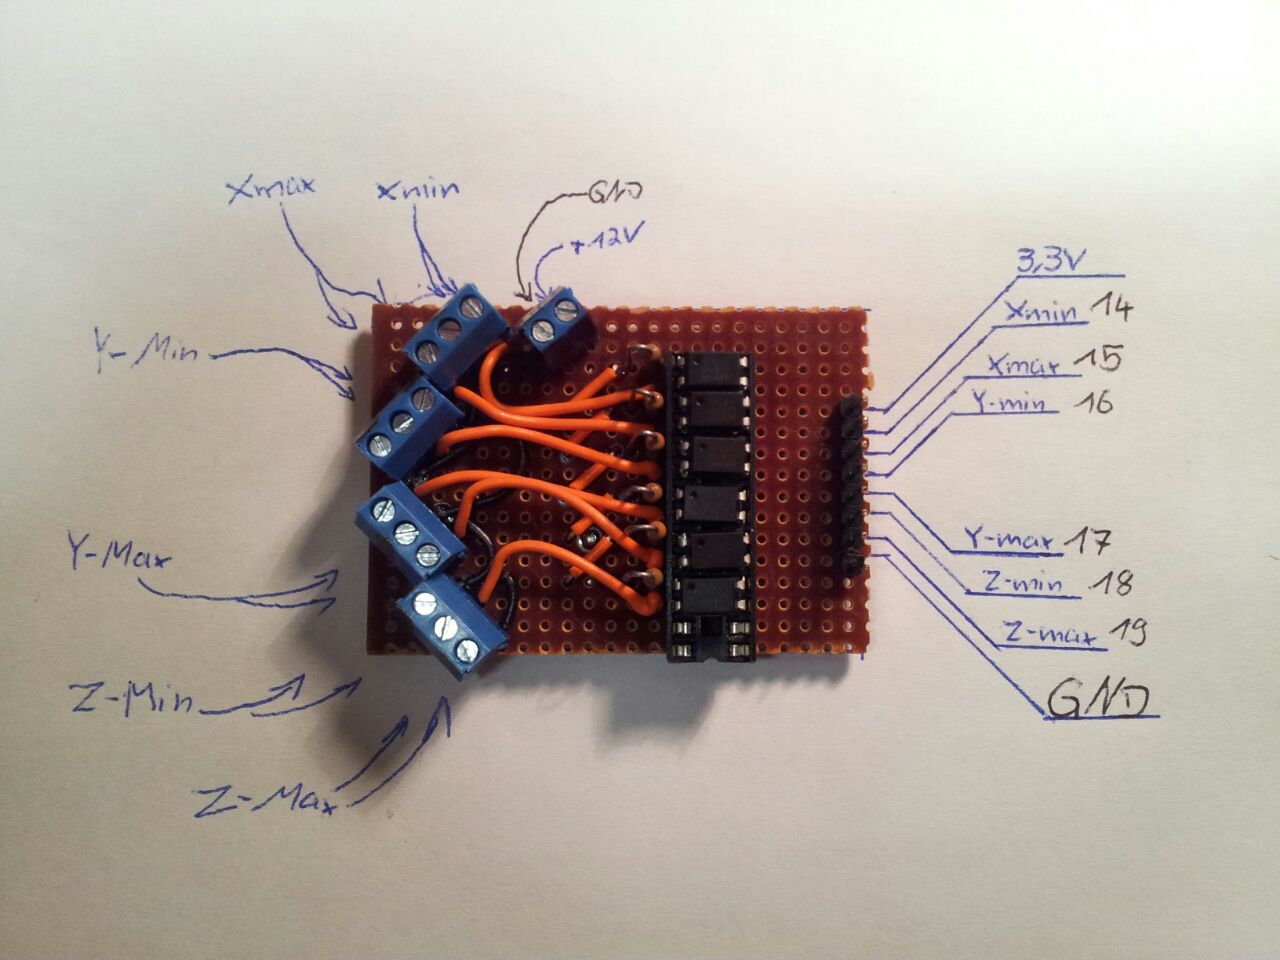 Xmax
Xmin
GND
+12V
Y-Min
Y-Max
Z-Min
Z-Max
3,3V
Xmin 14
Xmax 15
Y-min 16
Y-max 17
Z-min 18
Z-max 19
GND